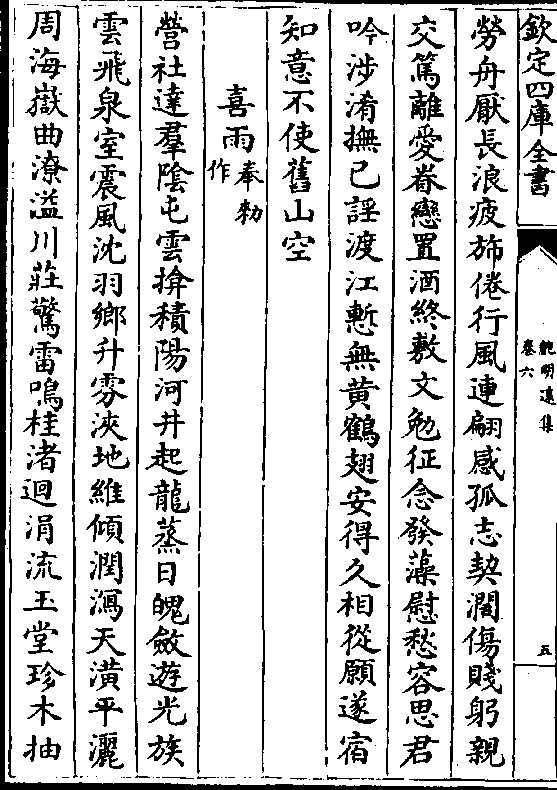 欽定四庫全書
鮑明遠集
卷六
五
勞舟厭長浪疲斾倦行風連翩感孤志契濶傷賤躬親
交篤離愛眷戀置酒終敷文勉征念發藻慰愁容思君
吟涉淆撫己謡渡江慙無黄鶴翅安得久相從願遂宿
知意不使舊山空
喜雨奉勅作
營社達羣隂屯雲揜積陽河井起龍蒸日魄斂遊光族
雲飛泉室震風沈羽鄉升雰浹地維傾潤瀉天潢平灑
周海嶽曲潦溢川莊驚雷鳴桂渚迴涓流玉堂珍木抽